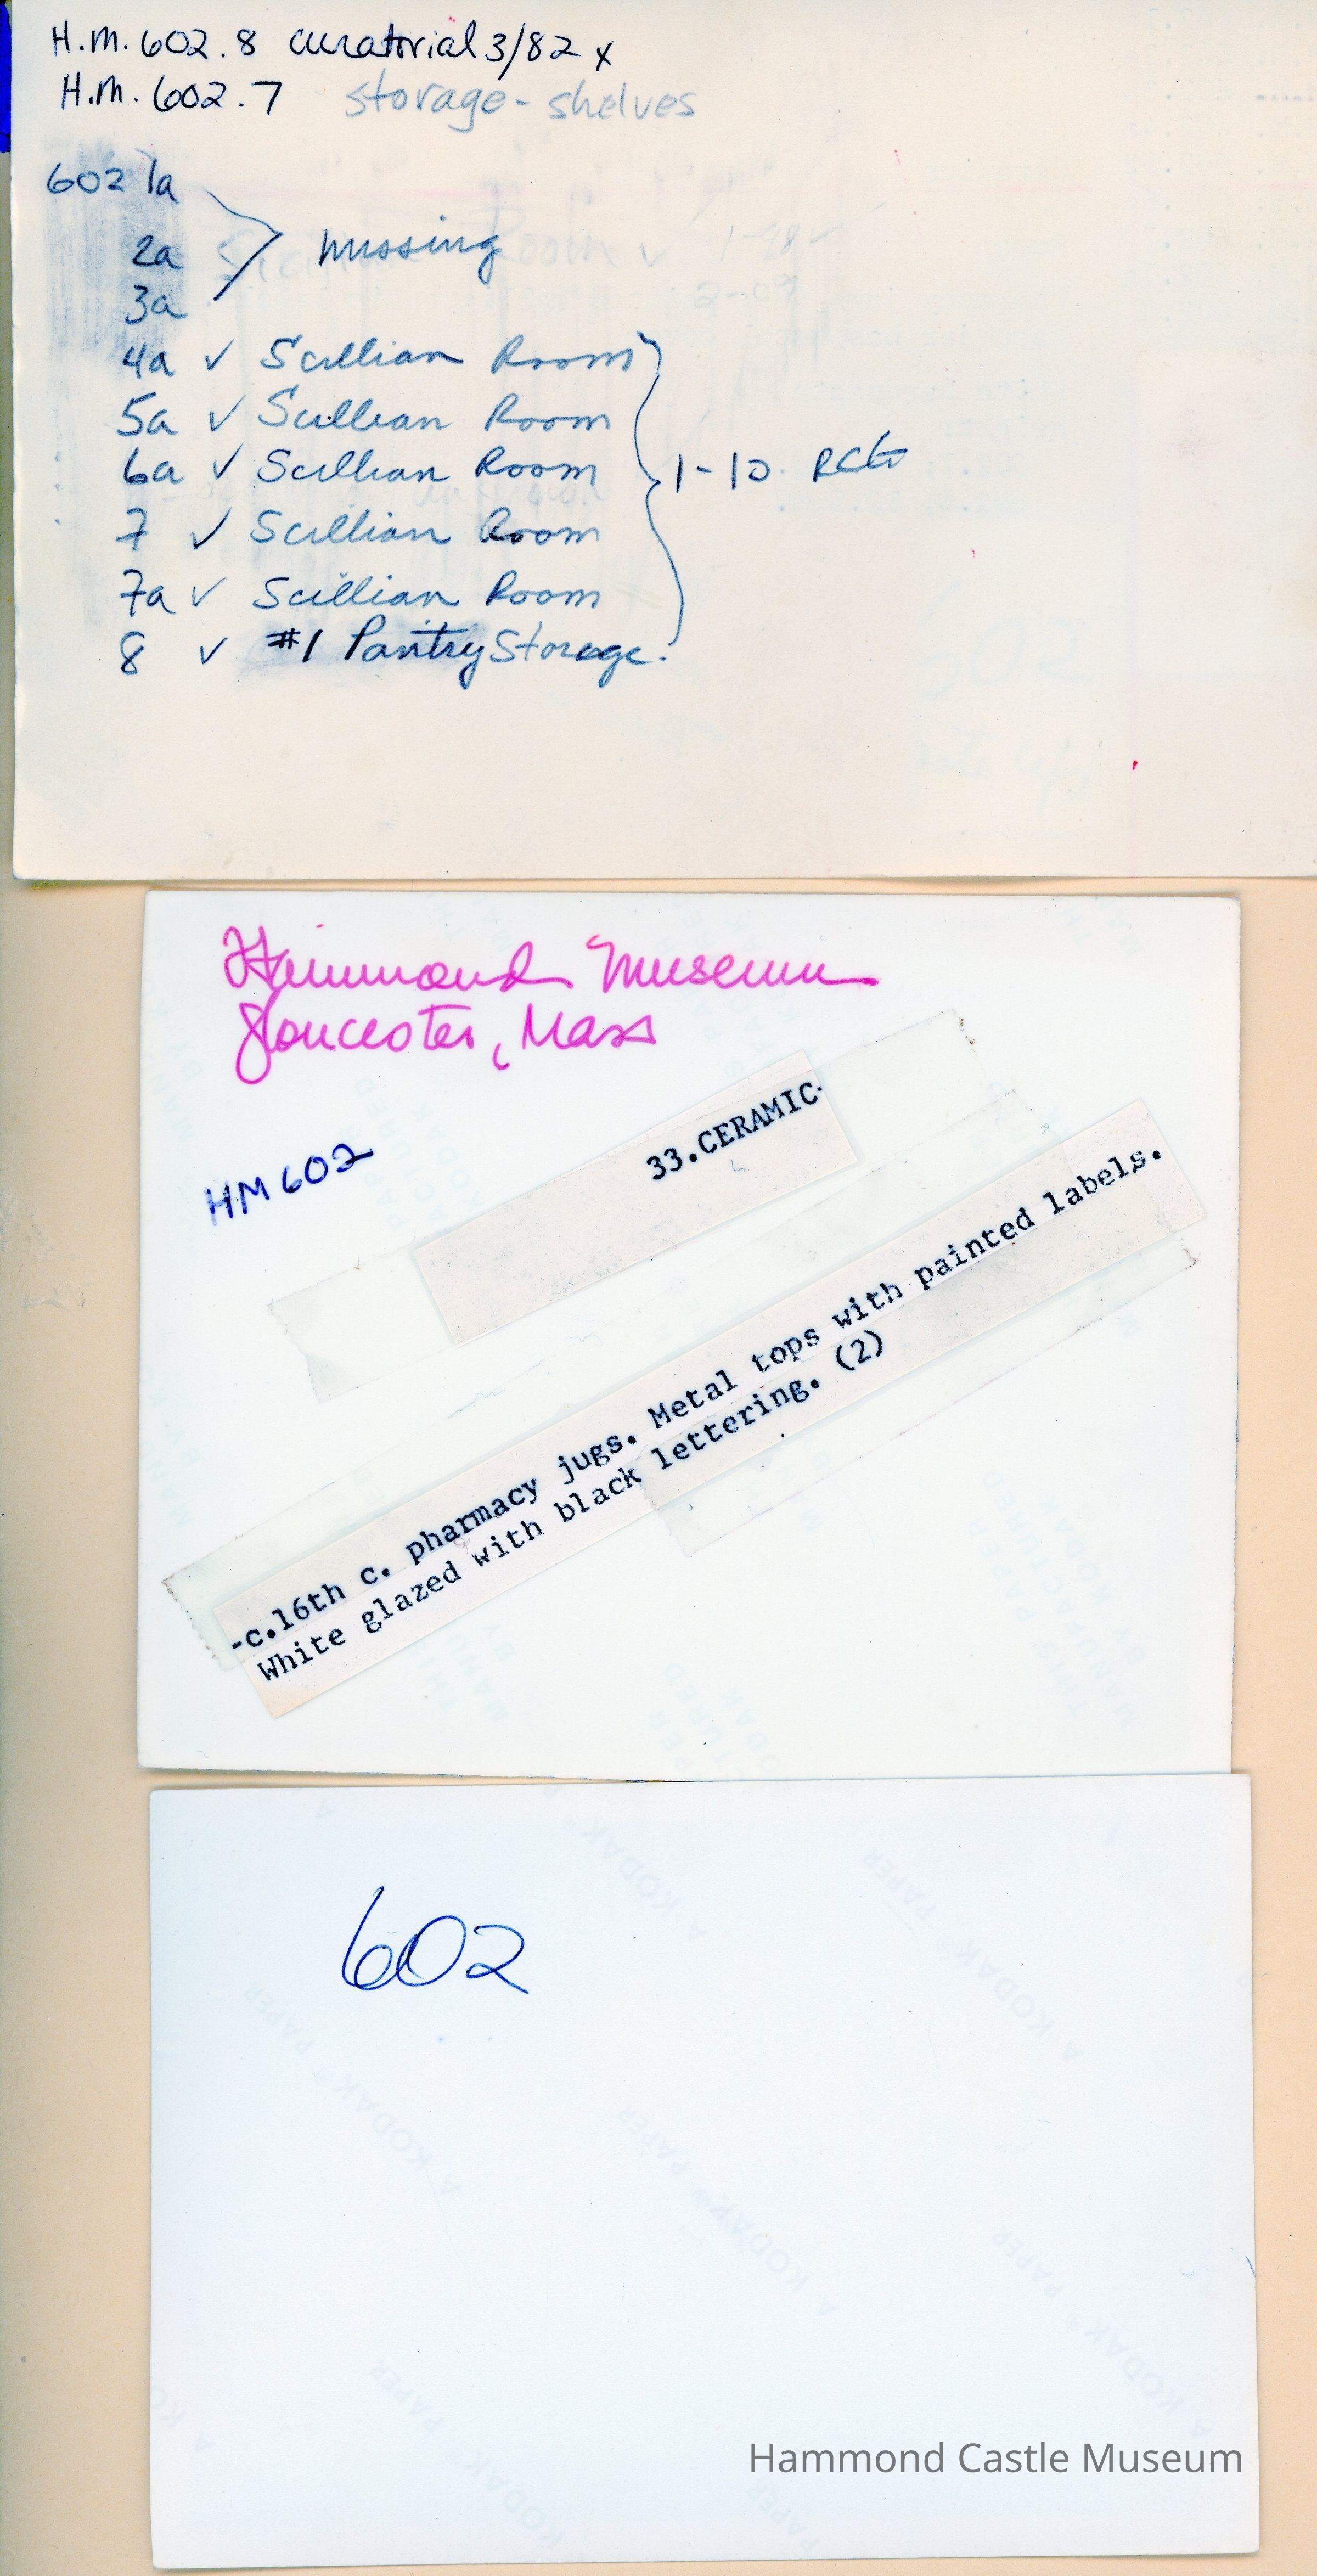 H.M. 602.8 curatorial 3/82 x
H.M. 602.7 storage - shelves
602 1a
2a
missing
3a
4a ✓ Scillian Room
5a ✓ Scillian Room
6a ✓ Scillian Room
1-10 RCG
7 ✓ Scillian Room
7a ✓ Scillian Room
8 ✓ #1 Pantry Storage.
Hammond Museum
Gloucester, Mass
HM 602
33.CERAMIC
-c.16th c. pharmacy jugs. Metal tops with painted labels.
White glazed with black lettering. (2)
602
Hammond Castle Museum